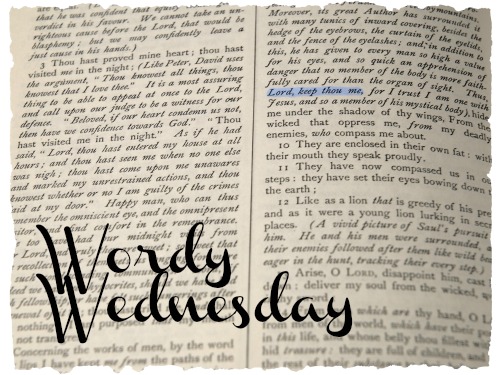 that he was confident that equity
verdict in his favour. We cannot take an un-
righteous cause before the Lord, that would be
blasphemy; but we may confidently leave a
just cause in his hands.)
3 Thou hast proved mine heart; thou hast
visited me in the night; (Like Peter, David uses
the argument, "Thou knowest all things, thou
knowest that I love thee." It is a most assuring
thing to be able to appeal at once to the Lord,
and call upon our judge to be a witness for our
defence. "Beloved, if our heart condemn us not,
then have we confidence toward God." "Thou
hast visited me in the night." As if he had
said, "Lord, thou hast entered my house at all
hours; and thou hast seen me when no one else
was nigh; thou hast come upon me unawares
and marked my unrestrained actions, and thou
knowest whether or no I am guilty of the crimes
laid at my door." Happy man, who can thus
remember the omniscient eye, and the omnipresent
visitor, and find comfort in the remembrance.
too have had midnight from
nothing
not tran
Concerning the works of men, by the word
lips I have kept me from the paths of the
Moreover, its great Author has surrounded it
with many tunics of inward covering, besides the
hedge of the eyebrows, the curtain of the eyelids,
and the fence of the eyelashes; and, in addition to
this, he has given to every man so high a value
for his eyes, and so quick an apprehension of
danger that no member of the body is more faith-
fully cared for than the organ of sight. Thus,
Lord, keep thou me, for I trust I am one with
Jesus, and so a member of his mystical body), hide
me under the shadow of thy wings, From the
wicked that oppress me, from my deadly
enemies, who compass me about.
10 They are enclosed in their own fat: with
their mouth they speak proudly.
11 They have now compassed us in our
steps: they have set their eyes bowing down to
the earth;
12 Like as a lion that is greedy of his prey,
and as it were a young lion lurking in secret
places. (A vivid picture of Saul's pursuit of
him. He and his men were surrounded,
their enemies followed after them like wild beasts
eager in the hunt, tracking their every step.)
Arise, O LORD, disappoint him, cast
: deliver my soul from the wicked,
which are thy hand, O L
from men of world, which have their
in this life, and whose belly thou fillest w
hid treasure: they are full of children, and
the rest of their substance
Wordy
Wednesday